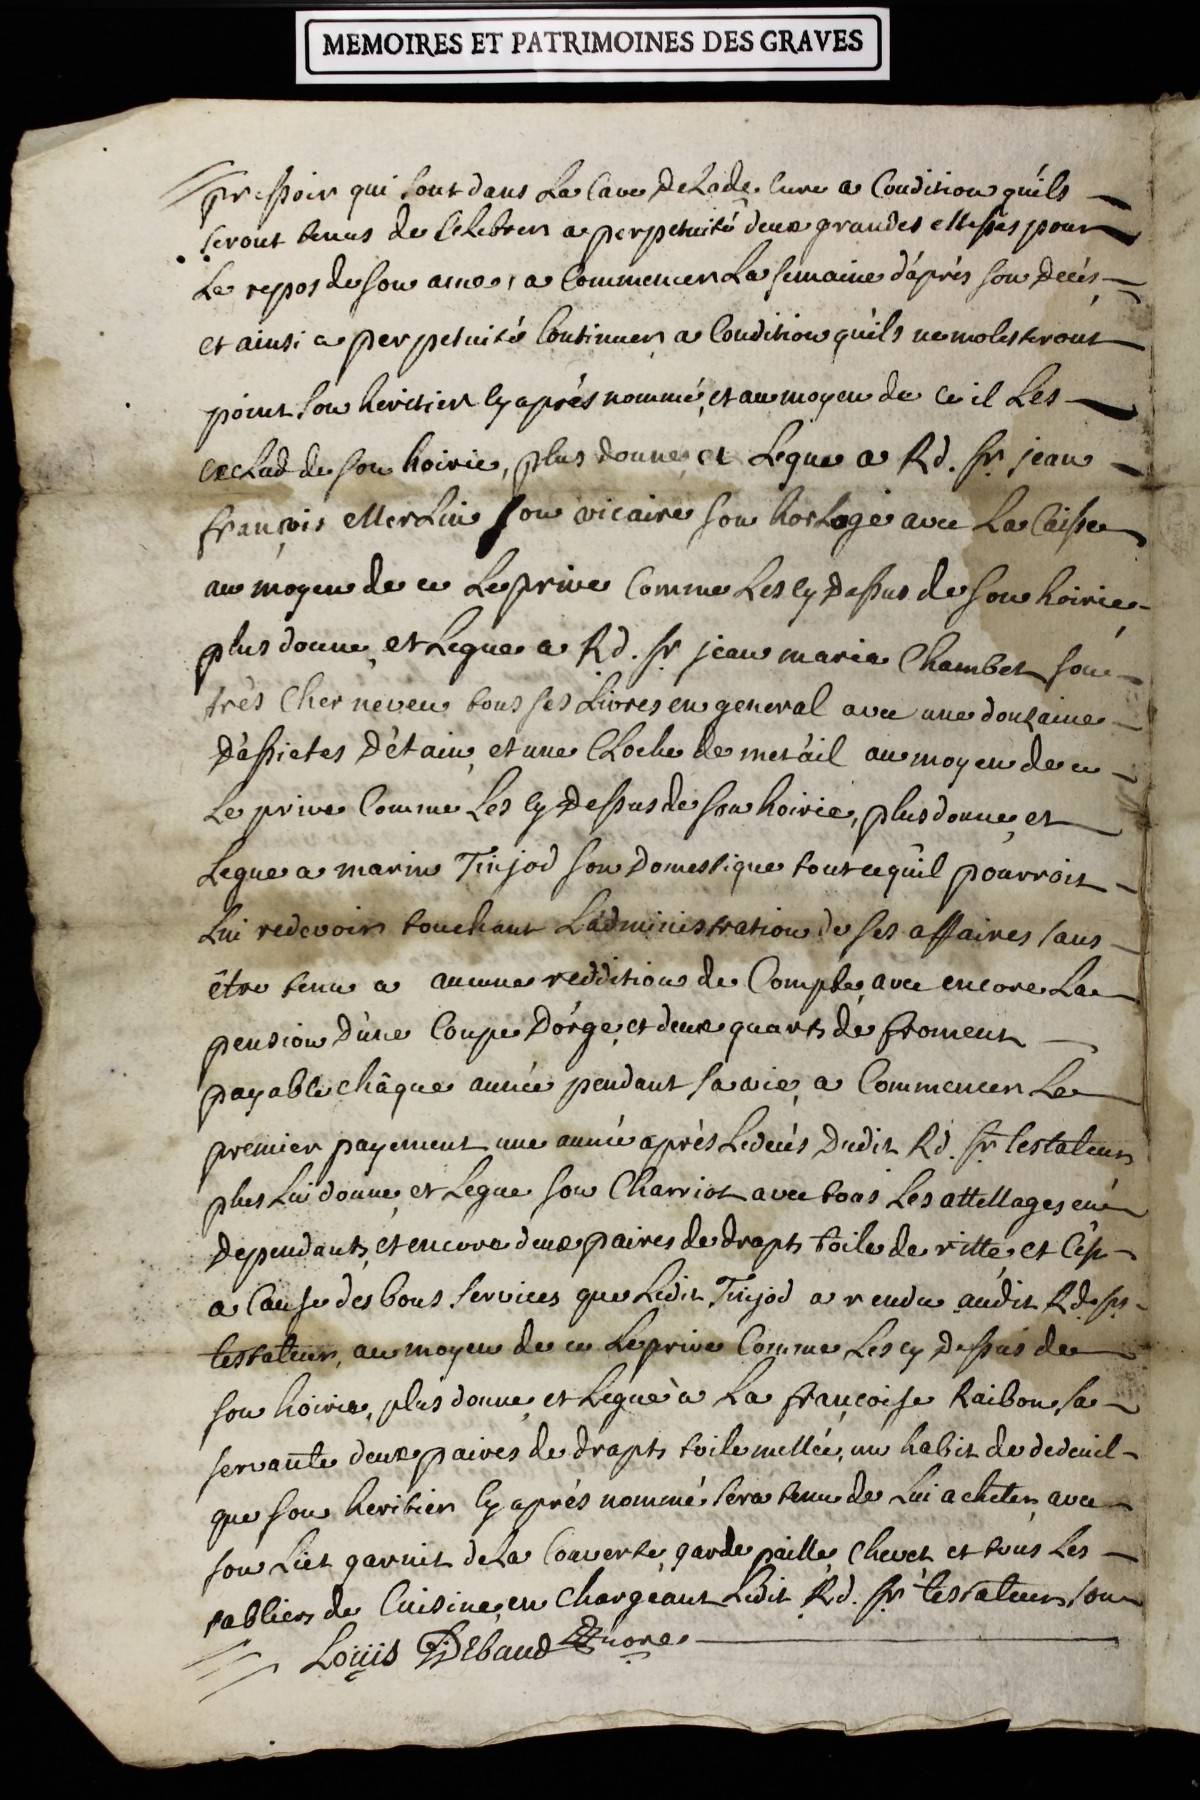 MEMOIRES ET PATRIMOINES DES GRAVES
pressoir qui sont dans La Cave De Lade. Cure a Condition qu'ils
seront tenus de Celebrer a perpetuité deux grandes Messes pour
Le repos de son ame, a Commencer La semaine d'après son Decés
et ainsi a perpetuité Continuer, a Condition qu'ils ne molesteront
point son heritier Cy aprés nommé, et au moyen de ce il Les
exclud de son hoirie, plus donne, et Legue a Rd. Sr. jean
françois Merlin son vicaire son horloge avec La Caisse
au moyen de ce Le prive Comme Les Cy Dessus de son hoirie
plus donne, et Legue a Rd. Sr. jean marie Chambet son
très Cher neveu tous ses Livres en general avec une douzaine
D'assietes D'étain, et une Cloche de metail au moyen de ce
Le prive Comme Les Cy Dessus de son hoirie, plus donne, et
Legue a marin Tinjod son Domestique tout ce qu'il pourroit
Lui redevoir touchant L'administration de ses affaires sans
être tenu a aucune reddition de Compte, avec encore La
pension D'une Coupe D'órge, et deux quarts de froment
payable châque année pendant sa vie, a Commencer Le
premier payement une année après Le decés Dudit Rd. Sr. testateur
plus Lui donne, et Legue son Charriot avec tous Les attellages en
Dependants, et encore deux paires de drapts toile de ritte, et C'est
a Cause des bons services que Ledit Tinjod a rendu audit Rd. Sr.
testateur, au moyen de ce Le prive Comme Les cy Dessus de
son hoirie, plus donne, et Legue à La françoise Raibon sa
servante deux paires de drapts toile mellée, un habit de dedeuil
que son heritier Cy aprés nommé sera tenu de Lui acheter, avec
son Liet garnit de La Couverte, garde paille, Chevet et tous Les
tabliers de Cuisine, en Chargéant Ledit Rd. Sr. testateur son
Loüis Debaud